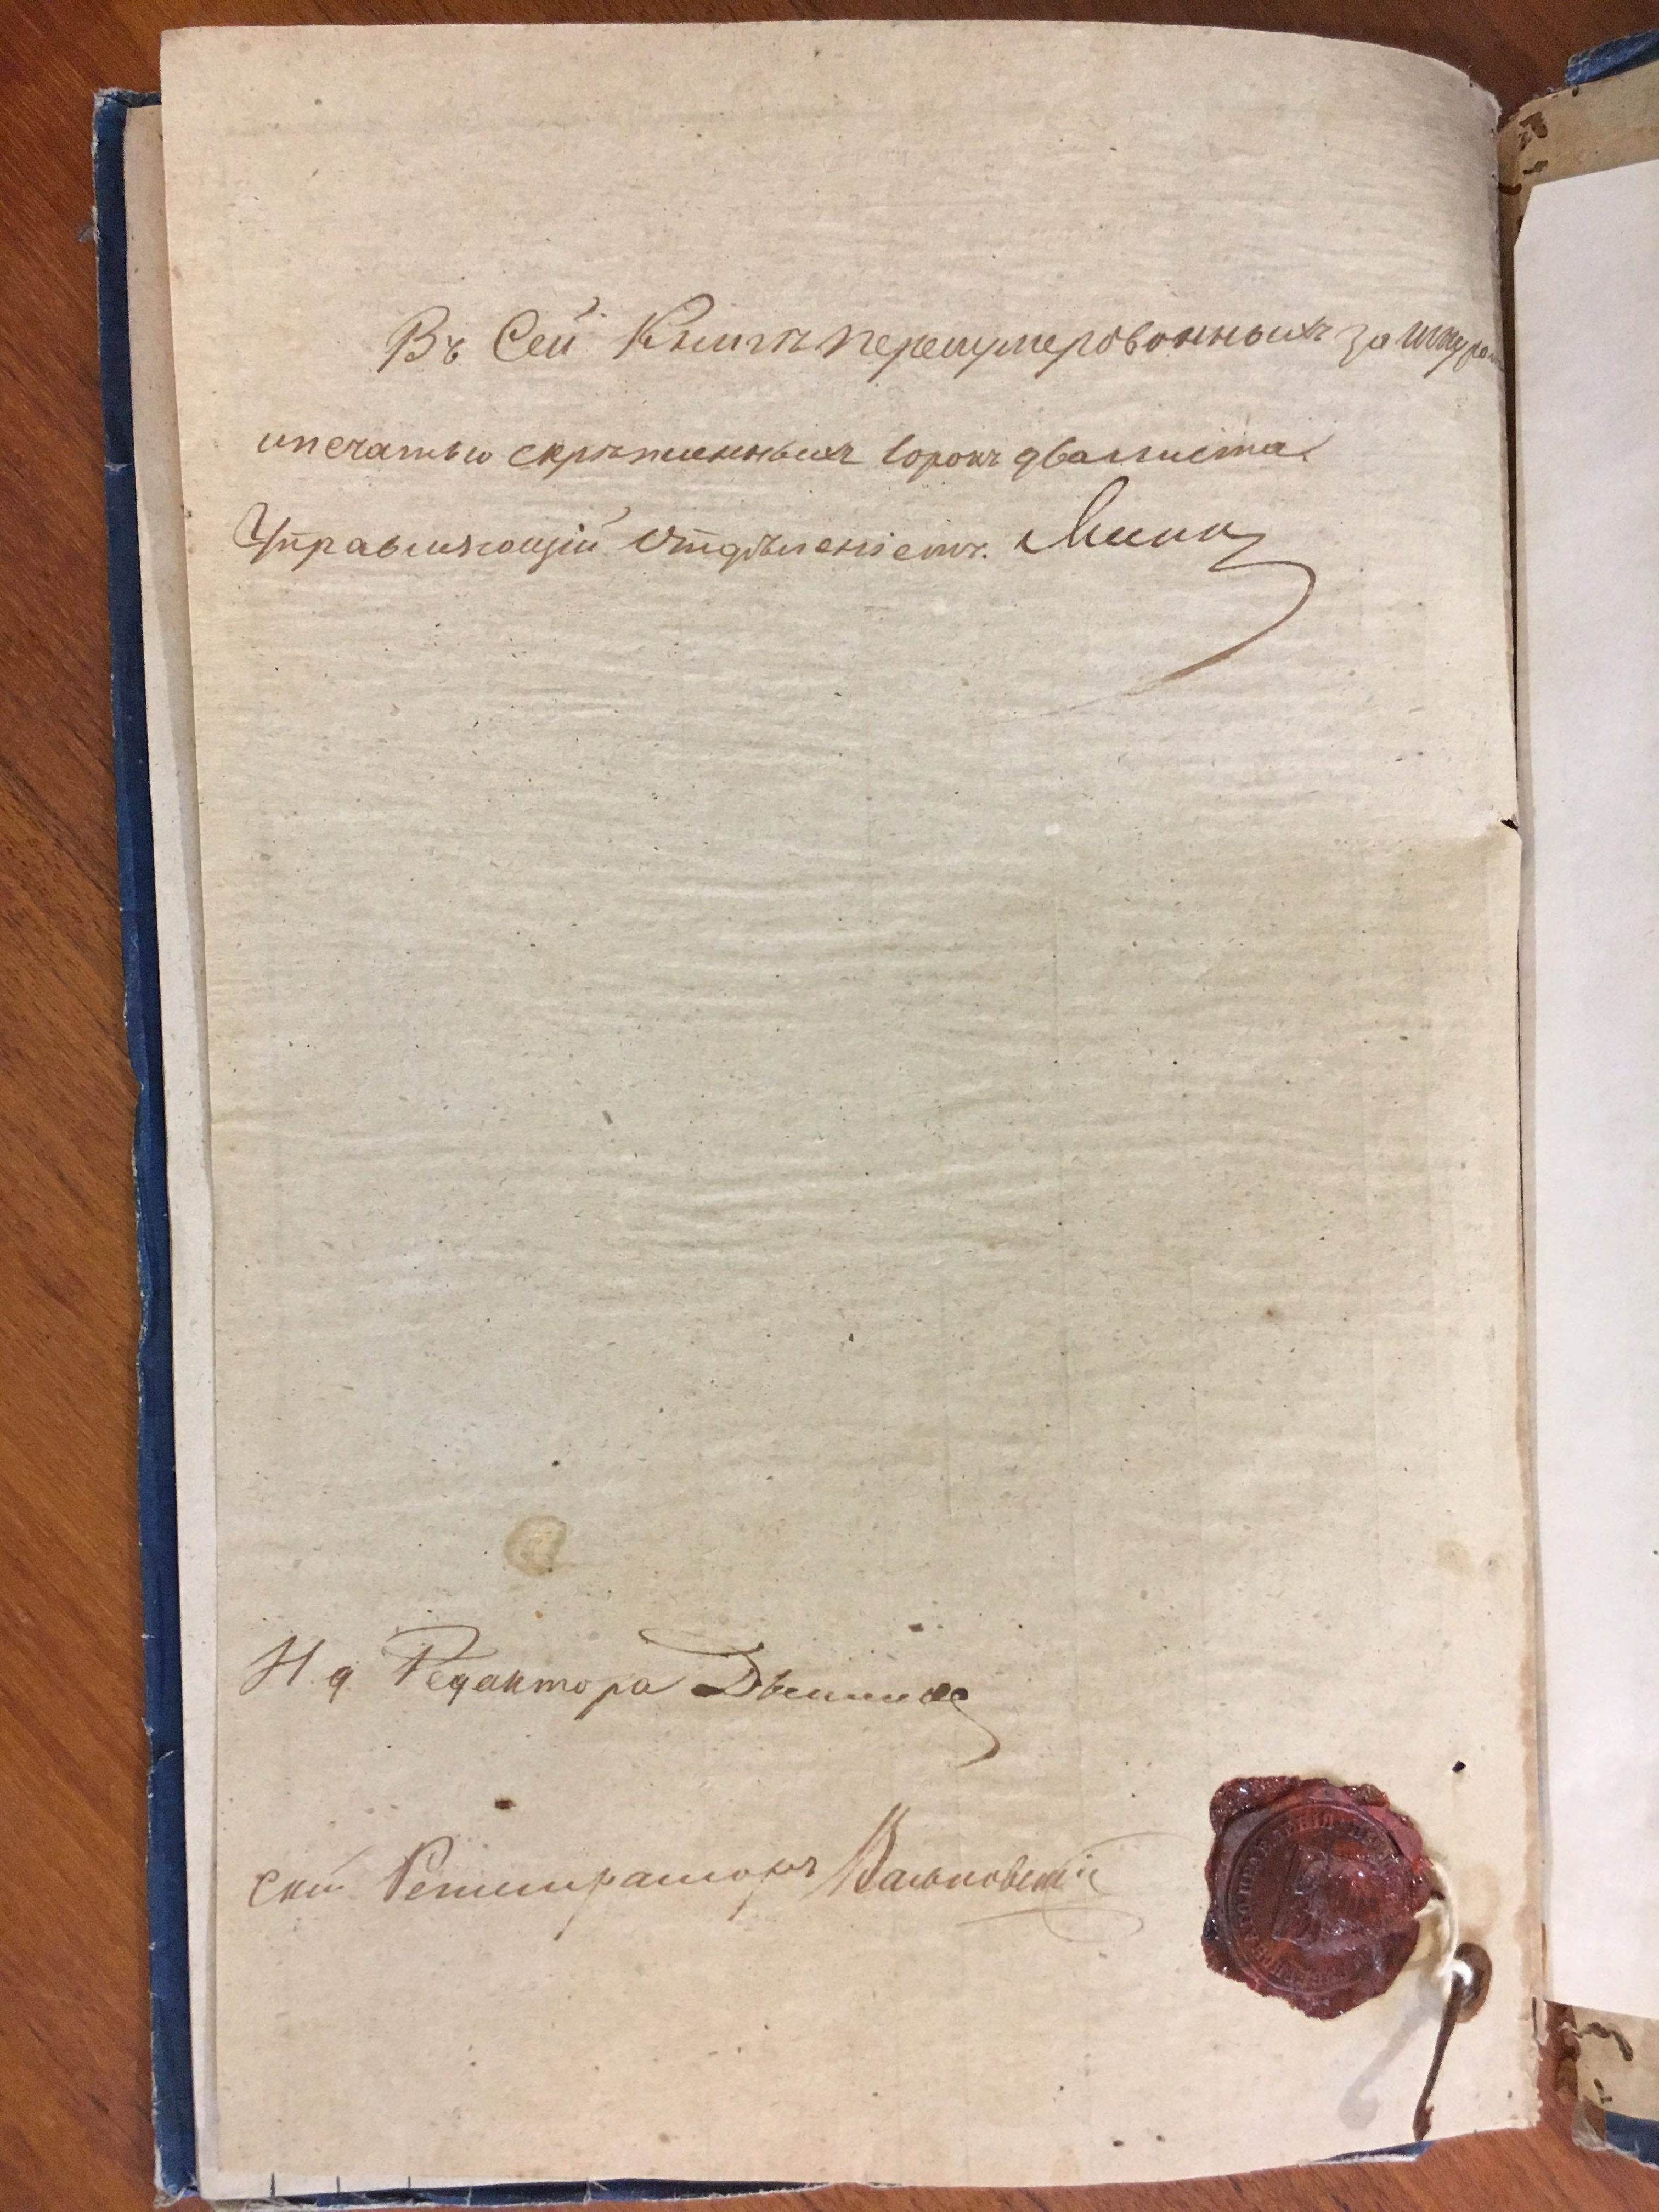 Въ Сей Книгѣ перенумерованныхъ за шнуром
ипечатью скрѣпленныхъ сорокъ два листа.
Управляющій Отдѣленіемъ.
И. д. Редактора
скпт. Регистраторъ